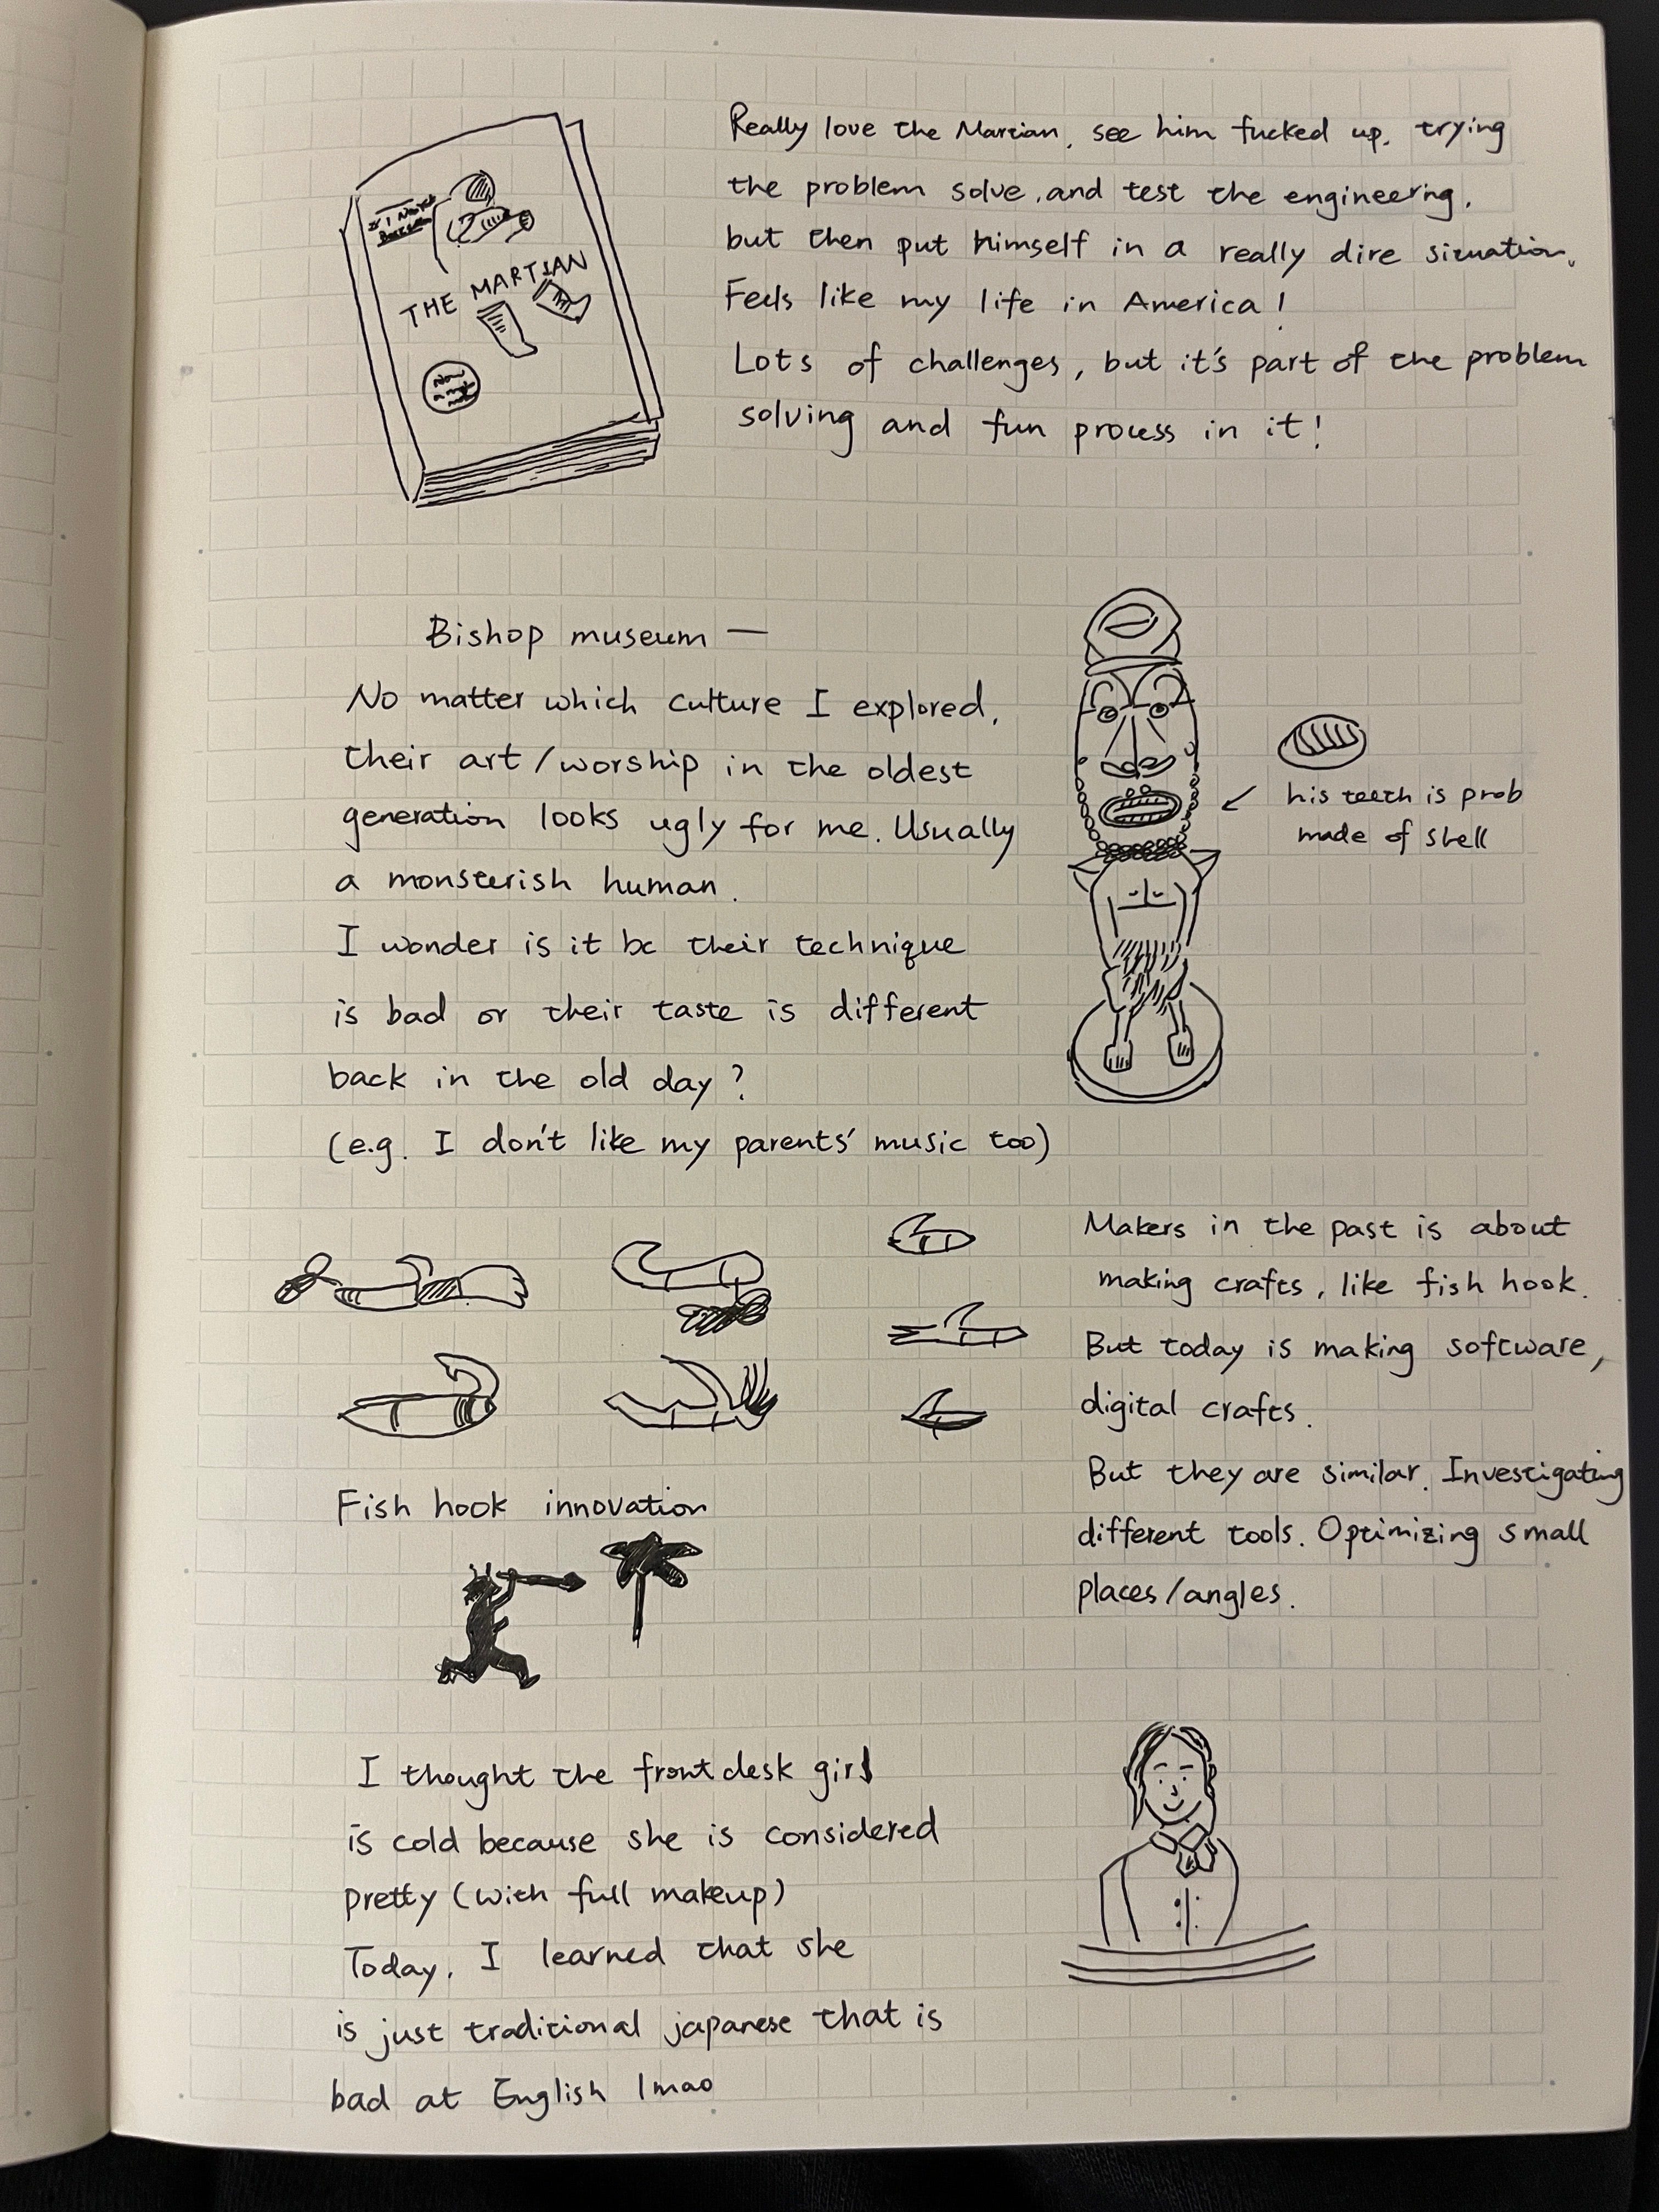 THE MARTIAN
Really love the Martian, see him fucked up, trying
the problem solve, and test the engineering,
but then put himself in a really dire situation.
Feels like my life in America!
Lots of challenges, but it's part of the problem
solving and fun process in it!
Bishop museum —
No matter which culture I explored,
their art/worship in the oldest
generation looks ugly for me. Usually
a monsterish human.
I wonder is it bc their technique
is bad or their taste is different
back in the old day?
(e.g. I don't like my parents' music too)
his teeth is prob
made of shell
Fish hook innovation
Makers in the past is about
making crafts, like fish hook.
But today is making software,
digital crafts.
But they are similar. Investigating
different tools. Optimizing small
places/angles.
I thought the front desk girl
is cold because she is considered
pretty (with full makeup)
Today, I learned that she
is just traditional japanese that is
bad at English lmao